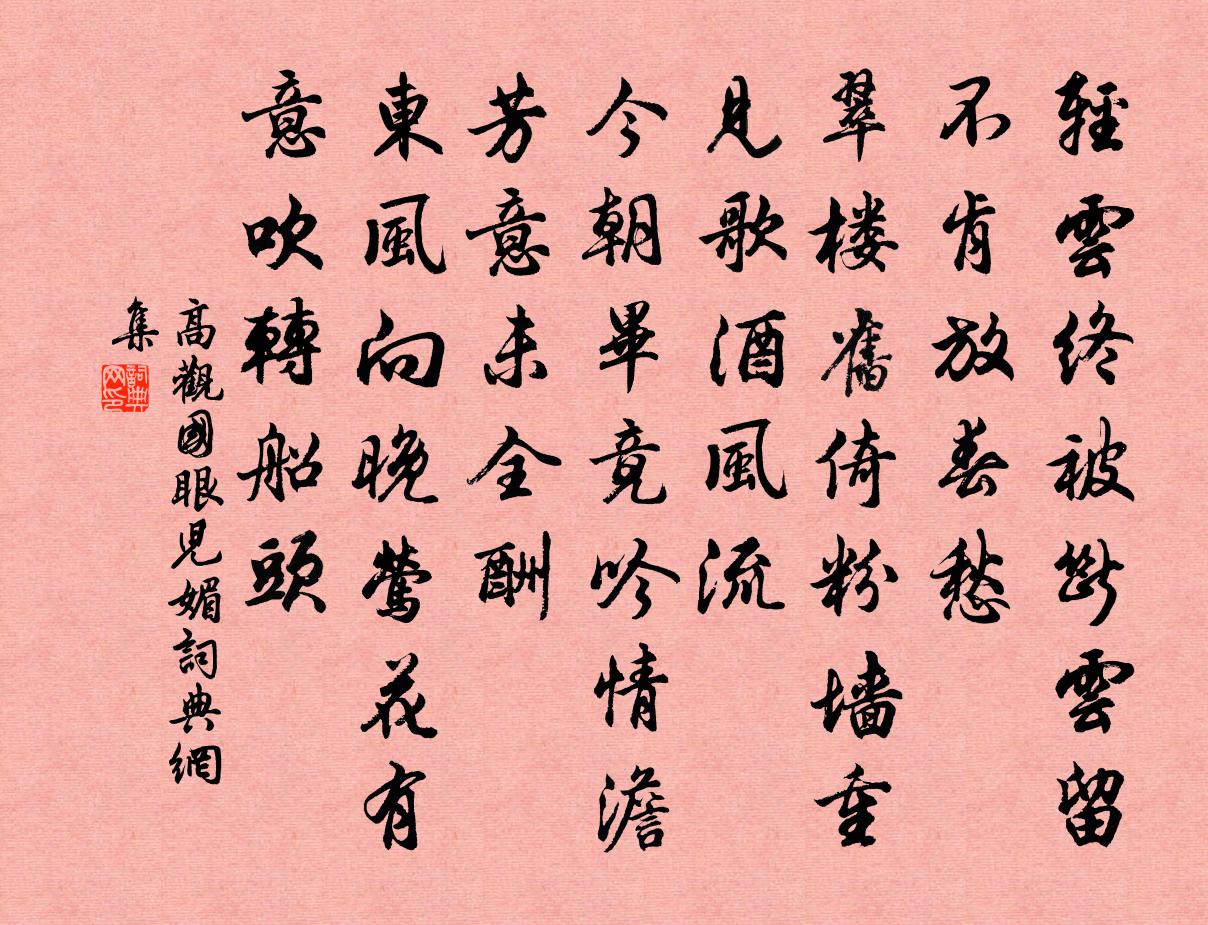 輕雲終被斷雲留
不肯放春愁
翠楼舊倚粉墙重
見歌酒風流
今朝畢竟吟情澹
芳意未全酬
東風向晚鶯花有
意吹轉船頭
高觀國眼兒媚詞典網
集
詞典
网印